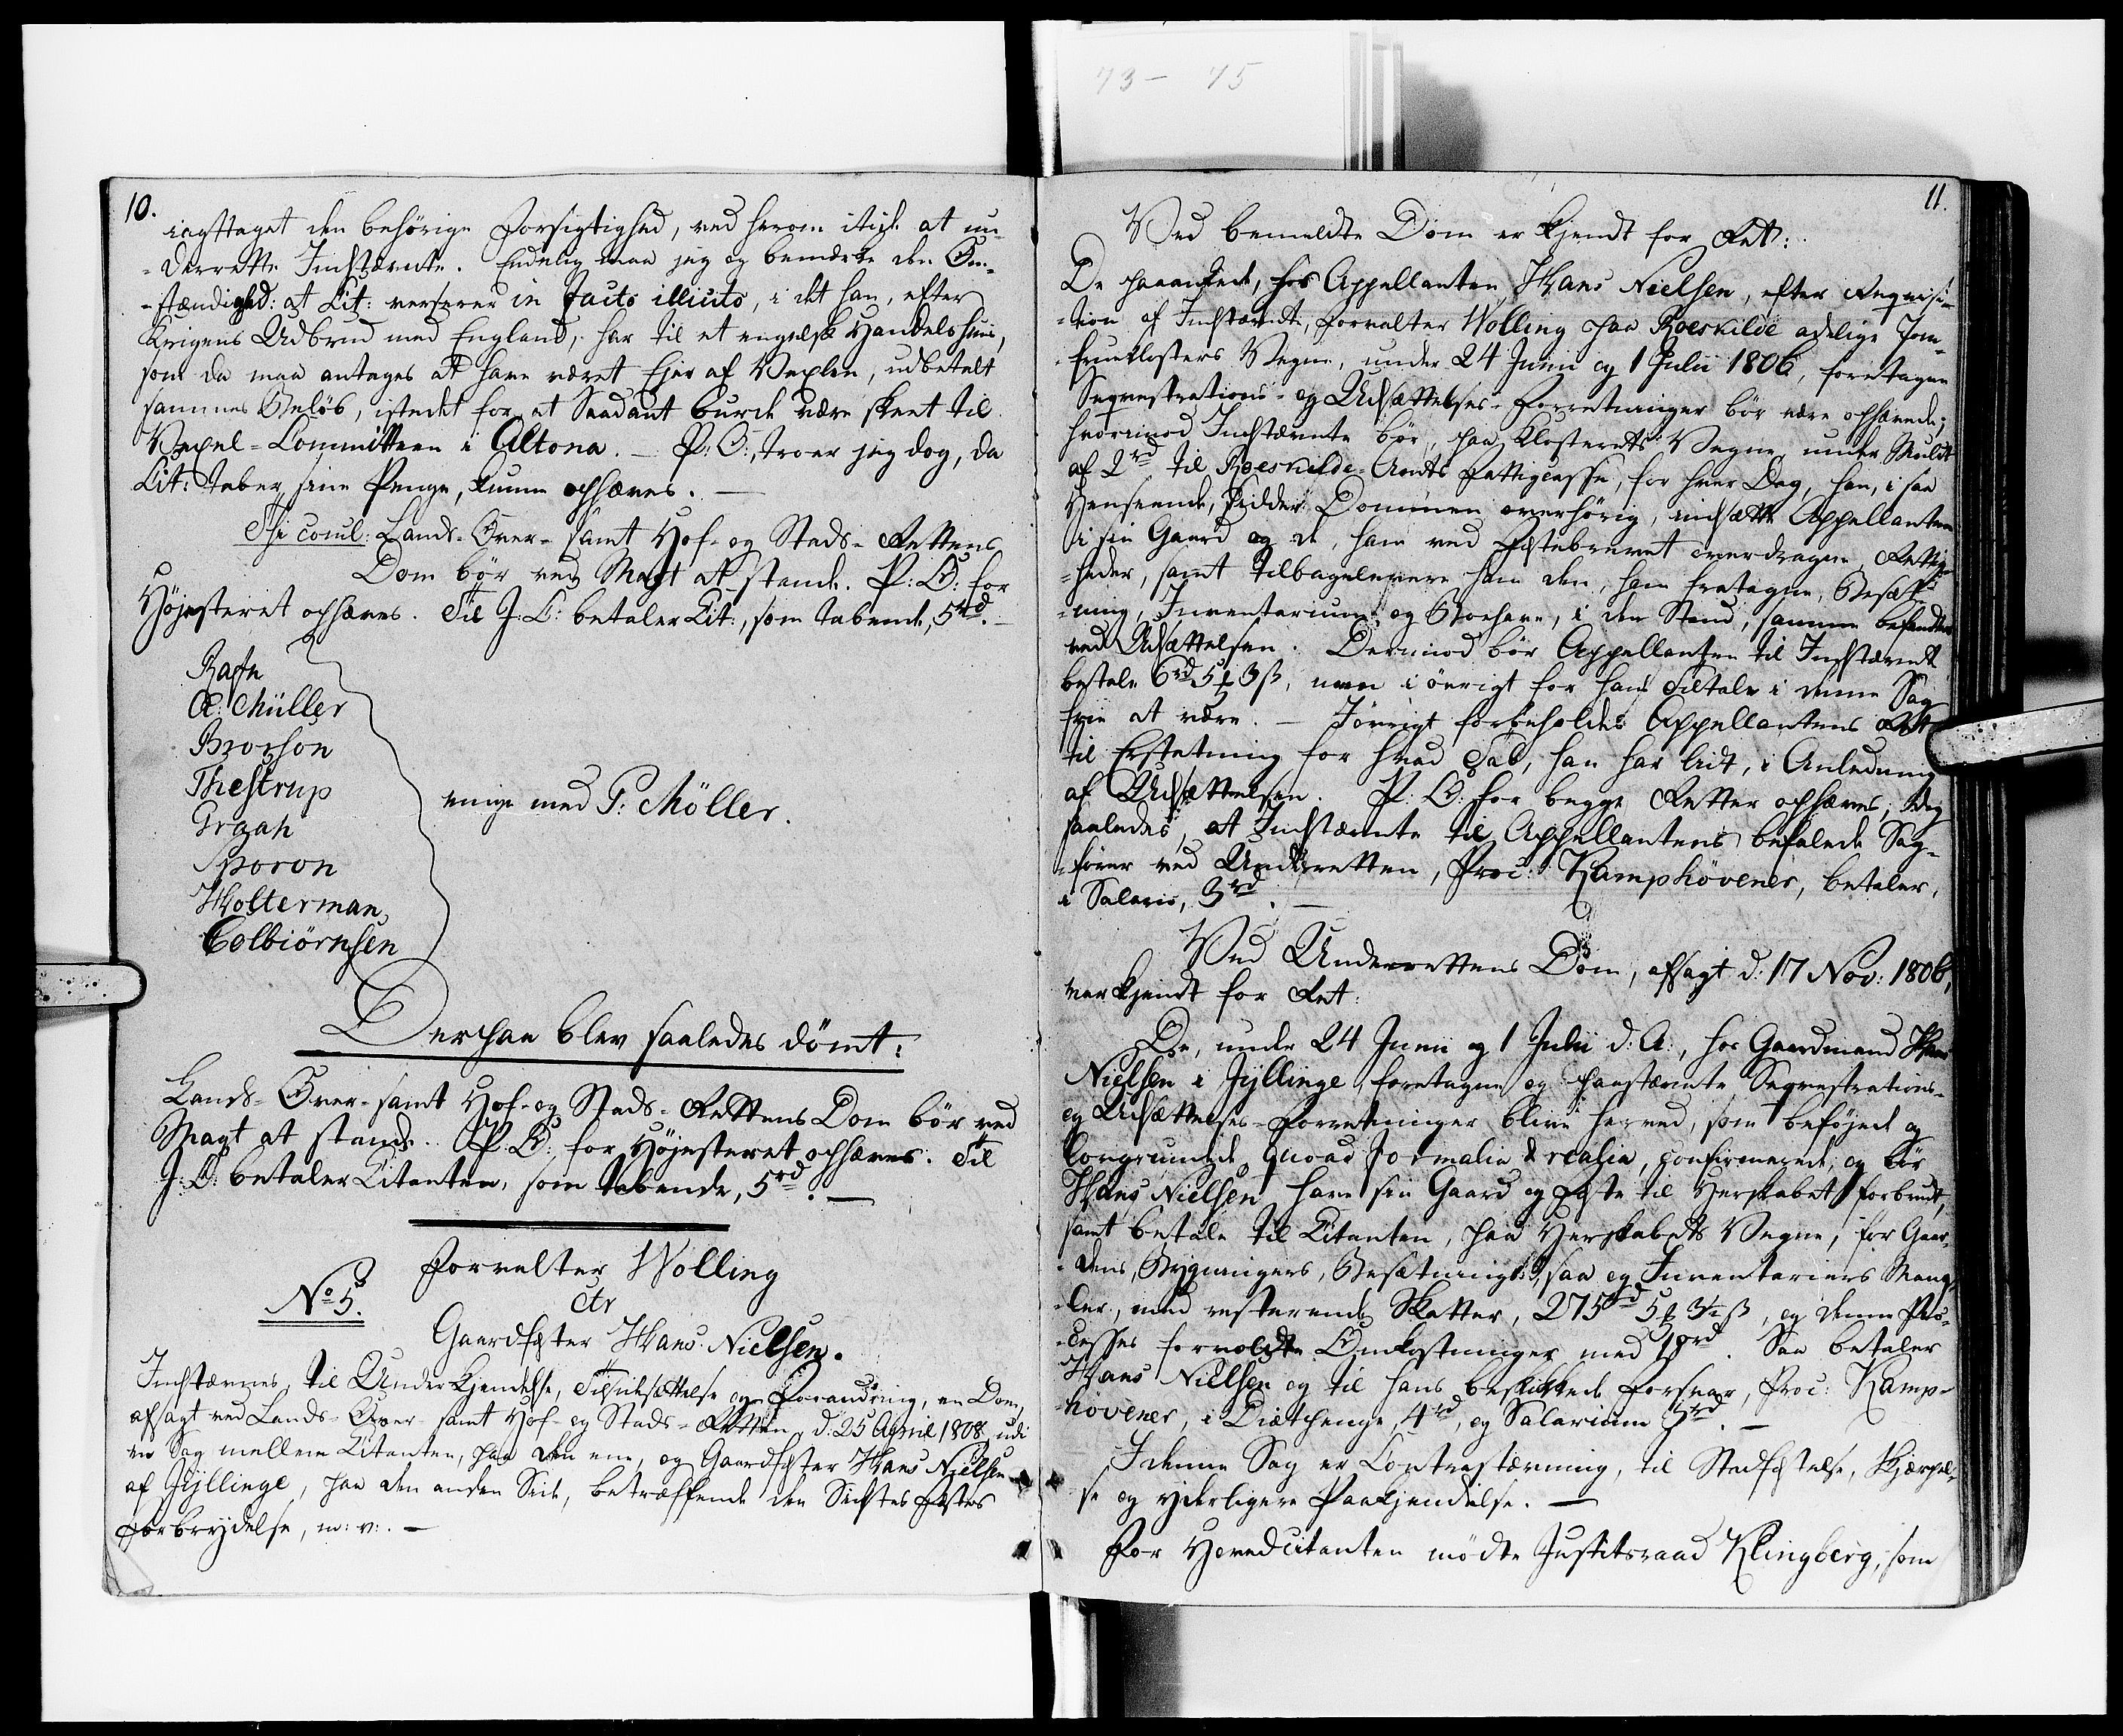 73 - 75
10.
iagttaget den behørige Forsigtighed, ved herom itide at un-
-derrette Indstævnte. Endelig maa jeg og bemærke den Om-
-stændighed: at Cit: verserer in facto illicito, i det han, efter
Krigens Udbrud med England, har til et engelsk Handelshuus,
som da maa antages at have været Ejer af Vexlen, udbetalt
sammes Beløb, istedet for at Saadant burde være skeet til
Vexel-Committeen i Altona. — P: O:, troer jeg dog, da
Cit: taber sine Penge, kunne ophæves. —
Thi concl: Lands-Over- samt Hof- og Stads-Rettens
Dom bør ved Magt at stande. P: O: for
Højesteret ophæves. Til J: C: betaler Cit:, som tabende, 5rd. —
Rafn
Œ: Müller
Brorson
Thestrup
Grgah
Sporon
Wolterman,
Colbiørnsen
enige med P: Möller.
Derpaa blev saaledes dømt:
Lands-Over- samt Hof- og Stads-Rettens Dom bør ved
Magt at stande. P: O: for Højesteret ophæves. Til
J: C: betaler Citanten, som tabende, 5rd. —
Forvalter Wolling
No 5.
ctr
Gaardfæster Hans Nielsen.
Indstævnes til Underkjendelse, Tilsidesættelse og Forandring, en Dom,
afsagt ved Lands-Over- samt Hof- og Stads-Retten, d: 25 April 1808, udi
en Sag mellem Citanten, paa den ene, og Gaardfæster Hans Nielsen
af Jyllinge, paa den anden Side, betræffende den Sidstes Fæstes
Forbrydelse, m: v: . —
11.
Ved bemeldte Dom er kjendt for Ret:
De paaankede, hos Appellanten, Hans Nielsen, efter Reqvisi-
-tion af Indstævnte, Forvalter Wolling paa Roeskilde adelige Jom-
-frueklosters Vegne, under 24 Junii og 1 Julii 1806, foretagne
Seqvestrations- og Udsættelses-Forretninger bør være ophævede;
hvorimod Indstævnte bør, paa Klosterets Vegne, under Mulct
af 2rd til Roeskilde-Amts Fattigcasse, for hver Dag, han, i saa
Henseende, sidder Dommen overhørig, indsætte Appellanten
i sin Gaard og de, ham ved Fæstebrevet overdragne, Rettig-
-heder, samt tilbagelevere ham den, ham fratagne, Besæt-
-ning, Inventarium og Boehave, i den Stand, samme befandtes
ved Udsættelsen. Derimod bør Appellanten til Indstævnte
betale 6rd 5 ₰ 3 ß, men i øvrigt for hans Tiltale i denne Sag
frie at være. — Iøvrigt forbeholdes Appellantens Ret
til Erstatning for hvad Tab, han har lidt, i Anledning
af Udsættelsen. P: O: for begge Retter ophæves; dog
saaledes, at Indstævnte til Appellantens befalede Sag-
-fører ved Underretten, Proc: Kamphövener, betaler,
i Salario, 3rd. —
Ved Underrettens Dom, afsagt d: 17 Nov: 1806,
var kjendt for Ret:
De, under 24 Junii og 1 Julii d: A:, hos Gaardmand Hans
Nielsen i Jyllinge foretagne og paastævnte Seqvestrations-
og Udsættelses-Forretninger blive herved, som beføjede og
lovgrundede, quoad formalia & realia, confirmerede, og bør
Hans Nielsen have sin Gaard og Fæste til Herskabet forbrudt,
samt betale til Citanten, paa Herskabets Vegne, for Gaar-
-dens, Bygningers, Besætnings, saa og Inventariers Mang-
-ler, med resterende Skatter, 275rd 5 ₰ 3½ ß, og denne Pro-
-cesses forvoldte Omkostninger med 18rd. Saa betaler
Hans Nielsen og til hans beskikkede Forsvar, Proc: Kamp-
-hövener, i Diætpenge 4rd, og Salarium 5rd. —
I denne Sag er Contrastævning, til Stadfæstelse, Skjærpel-
-se og yderligere Paakjendelse. —
For Hovedcitanten mødte Justitsraad Klingberg, som